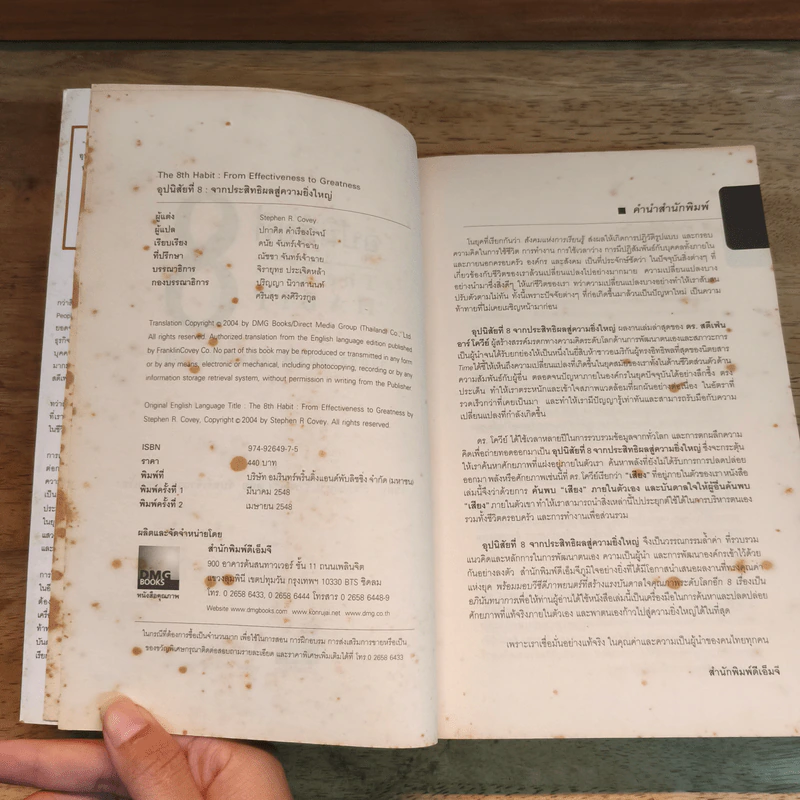 The 8th Habit : From Effectiveness to Greatness
อุปนิสัยที่ 8 : จากประสิทธิผลสู่ความยิ่งใหญ่
ผู้แต่ง Stephen R. Covey
ผู้แปล ปกาศิต คำเรืองโรจน์
เรียบเรียง ดนัย จันทร์เจ้าฉาย
ที่ปรึกษา ณัชชา จันทร์เจ้าฉาย
บรรณาธิการ จิรายุทธ ประเจิดหล้า
กองบรรณาธิการ ปริญญา นิวาสานนท์
ศรันสุข คงศิริวรกูล
Translation Copyright © 2004 by DMG Books/Direct Media Group (Thailand) Co., Ltd.
All rights reserved. Authorized translation from the English language edition published
by FranklinCovey Co. No part of this book may be reproduced or transmitted in any form
or by any means, electronic or mechanical, including photocopying, recording or by any
information storage retrieval system, without permission in writing from the Publisher
Original English Language Title : The 8th Habit : From Effectiveness to Greatness by
Stephen R. Covey, Copyright © 2004 by Stephen R Covey. All rights reserved.
ISBN 974-92649-7-5
ราคา 440 บาท
พิมพ์ที่ บริษัท อมรินทร์พริ้นติ้งแอนด์พับลิชชิ่ง จำกัด (มหาชน)
พิมพ์ครั้งที่ 1 มีนาคม 2548
พิมพ์ครั้งที่ 2 เมษายน 2548
ผลิตและจัดจำหน่ายโดย
DMG
BOOKS
หนังสือคุณภาพ
สำนักพิมพ์ดีเอ็มจี
900 อาคารต้นสนทาวเวอร์ ชั้น 11 ถนนเพลินจิต
แขวงลุมพินี เขตปทุมวัน กรุงเทพฯ 10330 BTS ชิดลม
โทร. 0 2658 6433, 0 2658 6444 โทรสาร 0 2658 6448-9
Website www.dmgbooks.com www.konrujai.net www.dmg.co.th
ในกรณีที่ต้องการซื้อเป็นจำนวนมาก เพื่อใช้ในการสอน การฝึกอบรม การส่งเสริมการขายหรือเป็น
ของขวัญพิเศษกรุณาติดต่อสอบถามรายละเอียด และราคาพิเศษเพิ่มเติมได้ที่ โทร.0 2658 6433
■ คำนำสำนักพิมพ์
ในยุคที่เรียกกันว่า สังคมแห่งการเรียนรู้ ส่งผลให้เกิดการปฏิวัติรูปแบบ และกรอบ
ความคิดในการใช้ชีวิต การทำงาน การใช้เวลาว่าง การมีปฏิสัมพันธ์กับบุคคลทั้งภายใน
และภายนอกครอบครัว องค์กร และสังคม เป็นที่ประจักษ์ชัดว่า ในปัจจุบันสิ่งต่างๆ ที่
เกี่ยวข้องกับชีวิตของเราล้วนเปลี่ยนแปลงไปอย่างมากมาย ความเปลี่ยนแปลงบาง
อย่างนำมาซึ่งสิ่งดีๆ ให้แก่ชีวิตของเรา ทว่าความเปลี่ยนแปลงบางอย่างทำให้เราสับสน
ปรับตัวตามไม่ทัน ทั้งนี้เพราะปัจจัยต่างๆ ที่ก่อเกิดขึ้นมาล้วนเป็นปัญหาใหม่ เป็นความ
ท้าทายที่ไม่เคยเผชิญหน้ามาก่อน
อุปนิสัยที่ 8 จากประสิทธิผลสู่ความยิ่งใหญ่ ผลงานเล่มล่าสุดของ ดร. สตีเฟ่น
อาร์ โควีย์ ผู้สร้างสรรค์มรดกทางความคิดระดับโลกด้านการพัฒนาตนเองและสภาวะการ
เป็นผู้นำจนได้รับยกย่องให้เป็นหนึ่งในยี่สิบห้าชาวอเมริกันผู้ทรงอิทธิพลที่สุดของนิตยสาร
Time ได้ชี้ให้เห็นถึงความเปลี่ยนแปลงที่เกิดขึ้นในยุคสมัยของเราทั้งในด้านชีวิตส่วนตัวด้าน
ความสัมพันธ์กับผู้อื่น ตลอดจนปัญหาภายในองค์กรในยุคปัจจุบันได้อย่างลึกซึ้ง ตรง
ประเด็น ทำให้เราตระหนักและเข้าใจสภาพแวดล้อมที่ผกผันอย่างต่อเนื่อง ในอัตราที่
รวดเร็วกว่าที่เคยเป็นมา และทำให้เรามีปัญญารู้เท่าทันและสามารถรับมือกับความ
เปลี่ยนแปลงที่กำลังเกิดขึ้น
ดร. โควีย์ ได้ใช้เวลาหลายปีในการรวบรวมข้อมูลจากทั่วโลก และการตกผลึกความ
คิดเพื่อถ่ายทอดออกมาเป็น อุปนิสัยที่ 8 จากประสิทธิผลสู่ความยิ่งใหญ่ ซึ่งจะกระตุ้น
ให้เราค้นหาศักยภาพที่แฝงอยู่ภายในตัวเรา ค้นหาพลังที่ยังไม่ได้รับการการปลดปล่อย
ออกมา พลังหรือศักยภาพเช่นนี้ที่ ดร. โควีย์เรียกว่า "เสียง" ที่อยู่ภายในตัวของเราหนังสือ
เล่มนี้จึงว่าด้วยการ ค้นพบ "เสียง" ภายในตัวเอง และบันดาลใจให้ผู้อื่นค้นพบ
"เสียง" ภายในตัวเขา ทำให้เราสามารถนำสิ่งเหล่านี้ไปประยุกต์ใช้ได้ในการบริหารตนเอง
รวมทั้งชีวิตครอบครัว และการทำงานเพื่อส่วนรวม
อุปนิสัยที่ 8 จากประสิทธิผลสู่ความยิ่งใหญ่ จึงเป็นวรรณกรรมล้ำค่า ที่รวบรวม
แนวคิดและหลักการในการพัฒนาตนเอง ความเป็นผู้นำ และการพัฒนาองค์กรเข้าไว้ด้วย
กันอย่างลงตัว สำนักพิมพ์ดีเอ็มจีภูมิใจอย่างยิ่งที่ได้มีโอกาสนำเสนอผลงานที่ทรงคุณค่า
แห่งยุค พร้อมมอบวีซีดีภาพยนตร์ที่สร้างแรงบันดาลใจคุณภาพระดับโลกอีก 8 เรื่องเป็น
อภินันทนาการเพื่อให้ท่านผู้อ่านได้ใช้หนังสือเล่มนี้เป็นเครื่องมือในการค้นหาและปลดปล่อย
ศักยภาพที่แท้จริงภายในตัวเอง และพาตนเองก้าวไปสู่ความยิ่งใหญ่ได้ในที่สุด
เพราะเราเชื่อมั่นอย่างแท้จริง ในคุณค่าและความเป็นผู้นำของคนไทยทุกคน
สำนักพิมพ์ดีเอ็มจี